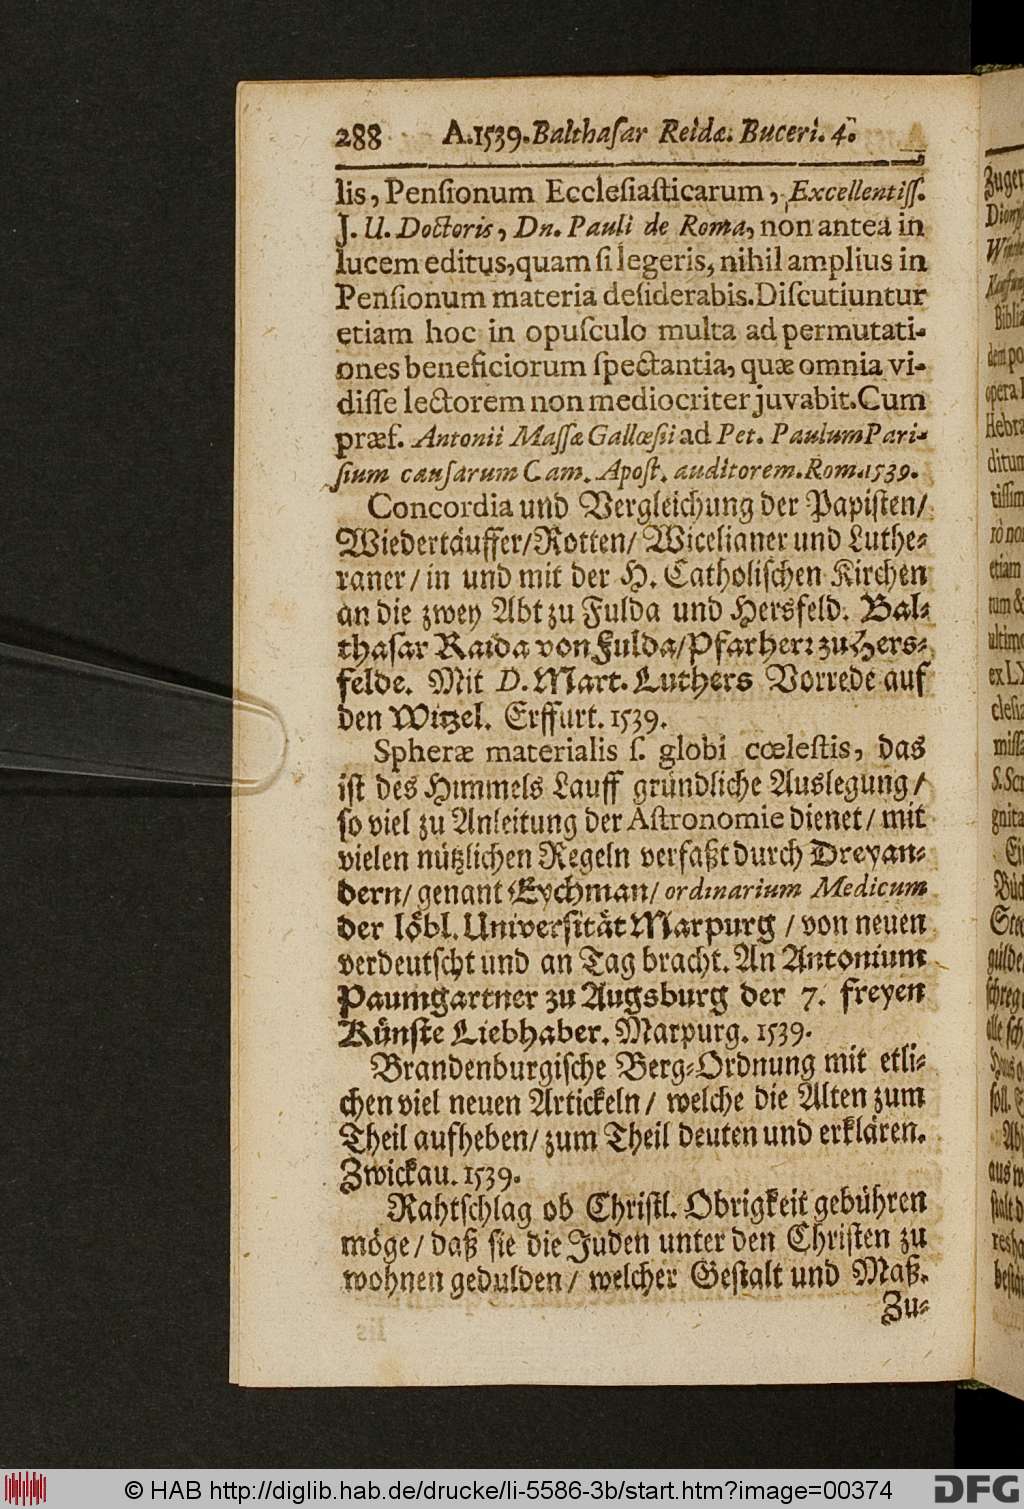 288 A. 1539. Balthasar Reidæ. Buceri. 4.
lis, Pensionum Ecclesiasticarum, Excellentiss.
J. U. Doctoris, Dn. Pauli de Roma, non antea in
lucem editus, quam si legeris, nihil amplius in
Pensionum materia desiderabis. Discutiuntur
etiam hoc in opusculo multa ad permutati-
ones beneficiorum spectantia, quæ omnia vi-
disse lectorem non mediocriter juvabit. Cum
præf. Antonii Massæ Gallœsii ad Pet. Paulum Pari-
sium causarum Cam. Apost. auditorem. Rom. 1539.
Concordia und Vergleichung der Papisten/
Wiedertäuffer/Rotten/ Wicelianer und Luthe-
raner/ in und mit der H. Catholischen Kirchen
an die zwey Abt zu Fulda und Hersfeld. Bal-
thasar Raida von Fulda/Pfarherr zu Hers-
felde. Mit D. Mart. Luthers Vorrede auf
den Witzel. Erffurt. 1539.
Spheræ materialis s. globi cœlestis, das
ist des Himmels Lauff gründliche Auslegung/
so viel zu Anleitung der Astronomie dienet/ mit
vielen nützlichen Regeln verfaßt durch Dreyan-
dern/ genant Eychman/ ordinarium Medicum
der löbl. Universität Marpurg/ von neuen
verdeutscht und an Tag bracht. An Antonium
Paumgartner zu Augsburg der 7. freyen
Künste Liebhaber. Marpurg. 1539.
Brandenburgische Berg-Ordnung mit etli-
chen viel neuen Artickeln/ welche die Alten zum
Theil aufheben/ zum Theil deuten und erklären.
Zwickau. 1539.
Rahtschlag ob Christl. Obrigkeit gebühren
möge/ daß sie die Juden unter den Christen zu
wohnen gedulden/ welcher Gestalt und Maß.
Zu-
© HAB http://diglib.hab.de/drucke/li-5586-3b/start.htm?image=00374
DFG